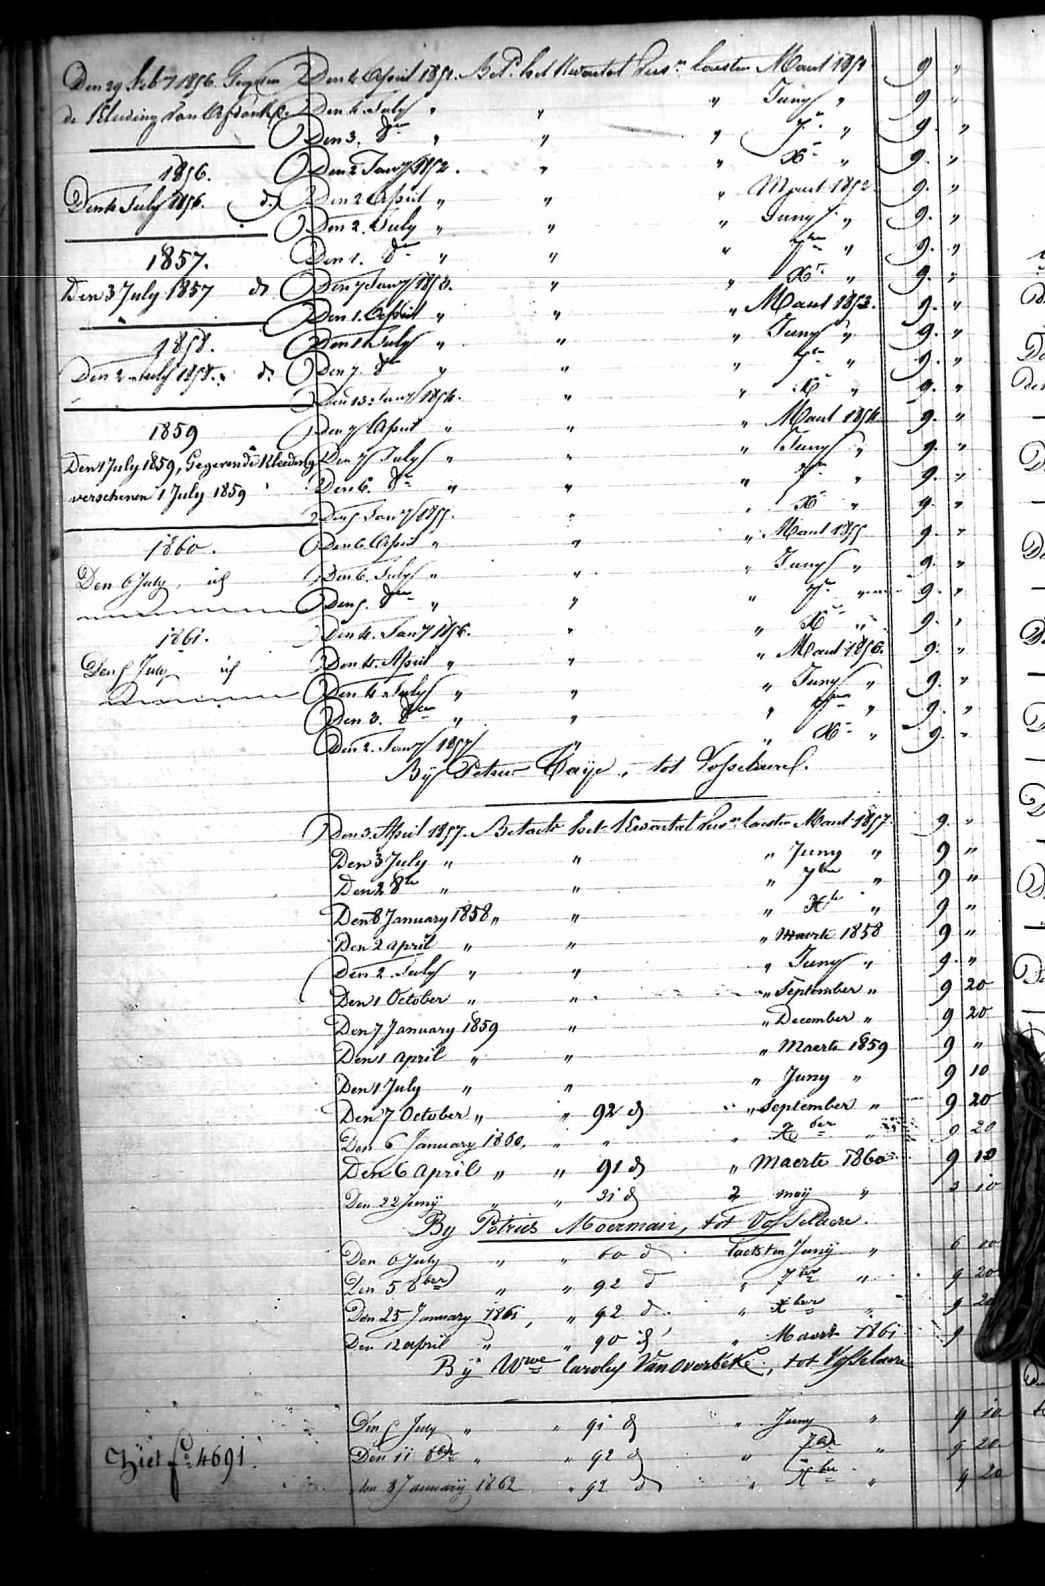 Den 29 feb 7 1856 Gegeven
de Kleeding van
1856.
Den 4 July 1856. d.
1857.
Den 3 July 1857 d
1858.
Den 2 July 1858. d.
1859
Den 1 July 1859, Gegeven de Kleeding
verschenen 1 July 1859
1860.
Den 6 July, ich
1861.
Den 5 July ich
Ziet f° 4691.
Den 4 April 1851. Bet. het Kwartal laesten Maart 1851 9 "
Den 4 July " " " Juny " 9 "
Den 3. 8re " " " 7re " 9. "
Den 2 Jan 7 1852. " " Xr " 9. "
Den 2 April " " " Maart 1852 9. "
Den 2. July " " " Juny " 9. "
Den 1. 8re " " " 7re " 9. "
Den 7 Jan 7 1853. " " Xr " 9. "
Den 1. April " " " Maart 1853. 9. "
Den 1 July " " " Juny " 9. "
Den 7. 8re " " " 7re " 9. "
Den 13 Jan 7 1854. " " Xr " 9. "
Den 7 April " " " Maart 1854 9. "
Den 7 July " " " Juny " 9. "
Den 6. 8re " " " 7re " 9. "
Den 5 Jan 7 1855. " " Xr " 9. "
Den 6 April " " " Maart 1855 9. "
Den 6. July " " " Juny " 9. "
Den 5. 8re " " " 7re " 9. "
Den 4. Jan 7 1856. " " Xr " 9. "
Den 4. April " " " Maart 1856. 9. "
Den 4 July " " " Juny " 9. "
Den 3. 8re " " " 7re " 9. "
Den 2. Jan 7 1857 " " Xr " 9. "
By Petrus , tot Vosselaere.
Den 3. April 1857. Betaelt het Kwartal laesten Maart 1857. 9. "
Den 3 July " " " Juny " 9 "
Den 2 8re " " " 7bre " 9 "
Den 8 January 1858 " " " Xbr " 9 "
Den 2 april " " " Maerte 1858 9 "
Den 2 July " " " Juny " 9. "
Den 1 October " " " September " 9 20
Den 7 January 1859 " " December " 9 20
Den 1 april " " " Maerte 1859 9 "
Den 1 July " " " Juny " 9 10
Den 7 October " " 92 d " September " 9 20
Den 6 January 1860, " " " Xber " 9 20
Den 6 April " " 91 d " Maerte 1860 9 10
Den 22 Juny " " 31 d " meij " 3 10
By Petrus Moerman, tot Vosselaere.
Den 6 July " " 60 d laetsten Junij " 6 10
Den 5 8ber " " 92 d " 7bre " 9 20
Den 25 January 1861, " 92 d " Xbre " 9 20
Den 12 april " " 90 d " Maerte 1861 9
By Wwe Caroley Van overbeke, tot Vosselaere
Den 5 July " " 91 d " Juny " 9 10
Den 11 8ber " " 92 d " 7br " 9 20
den 8 January 1862 " 92 d " Xbre " 9 20